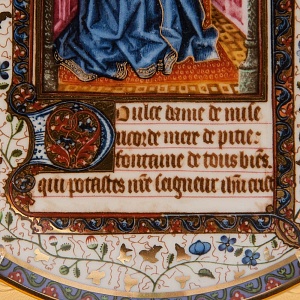 Doulce dame de mise
ricorde mere de pitie:
fontaine de tous biēs.
qui portastes nr̄e seigneur ihū crist